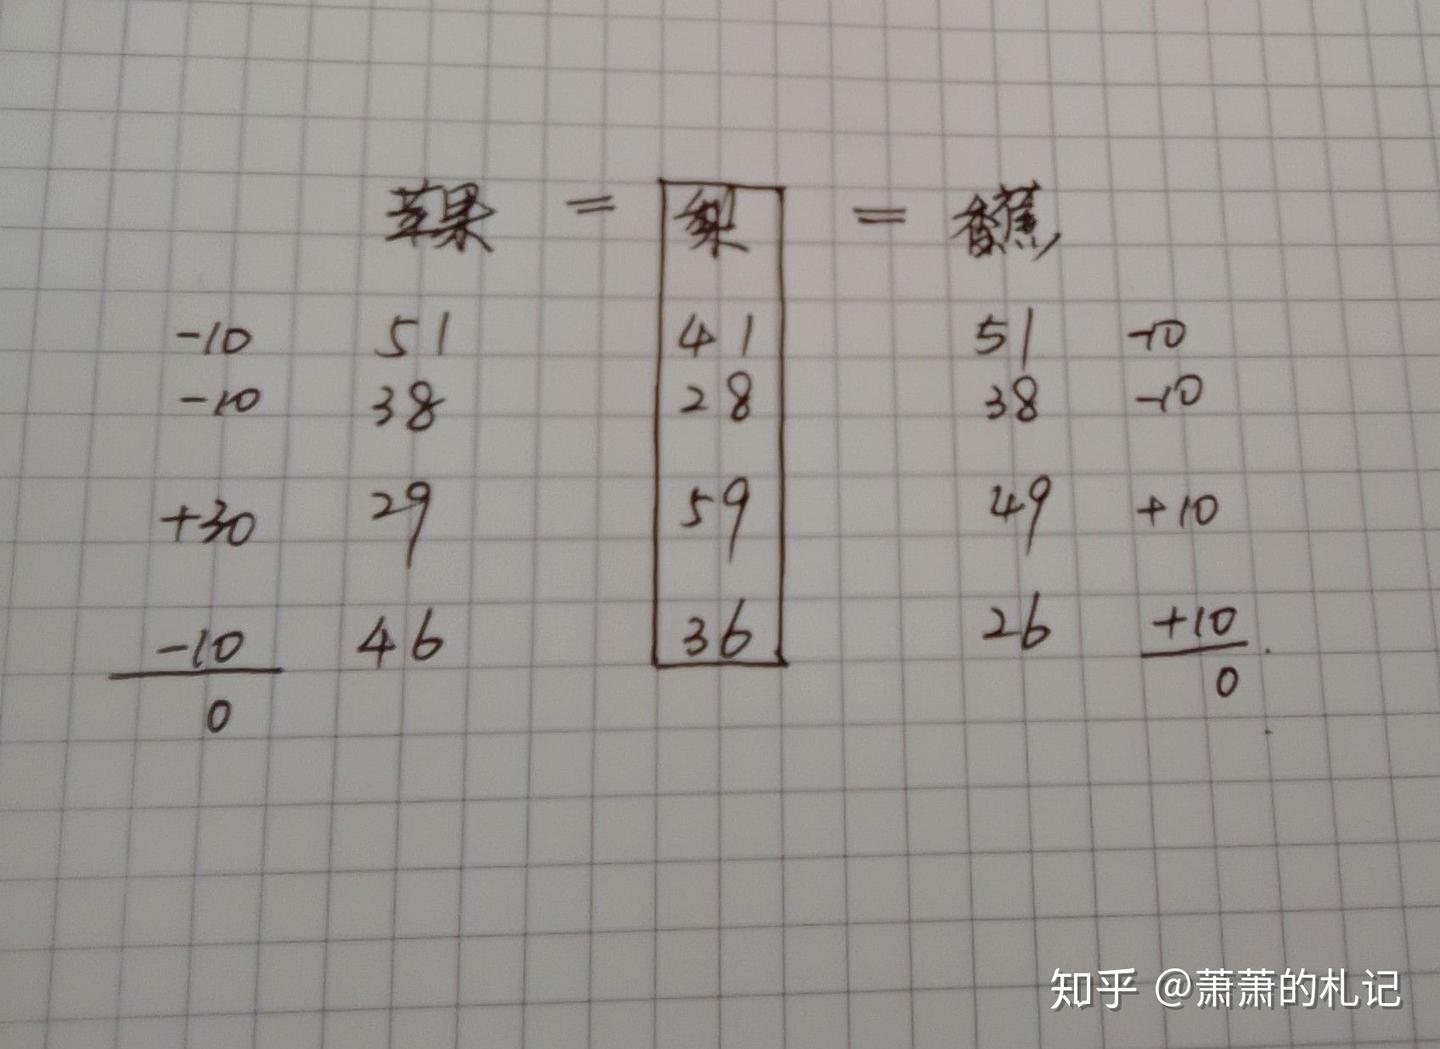 苹果 = 梨 = 香蕉
-10 51 41 51 -10
-10 38 28 38 -10
+30 29 59 49 +10
-10 46 36 26 +10
0 0
知乎 @萧萧的札记